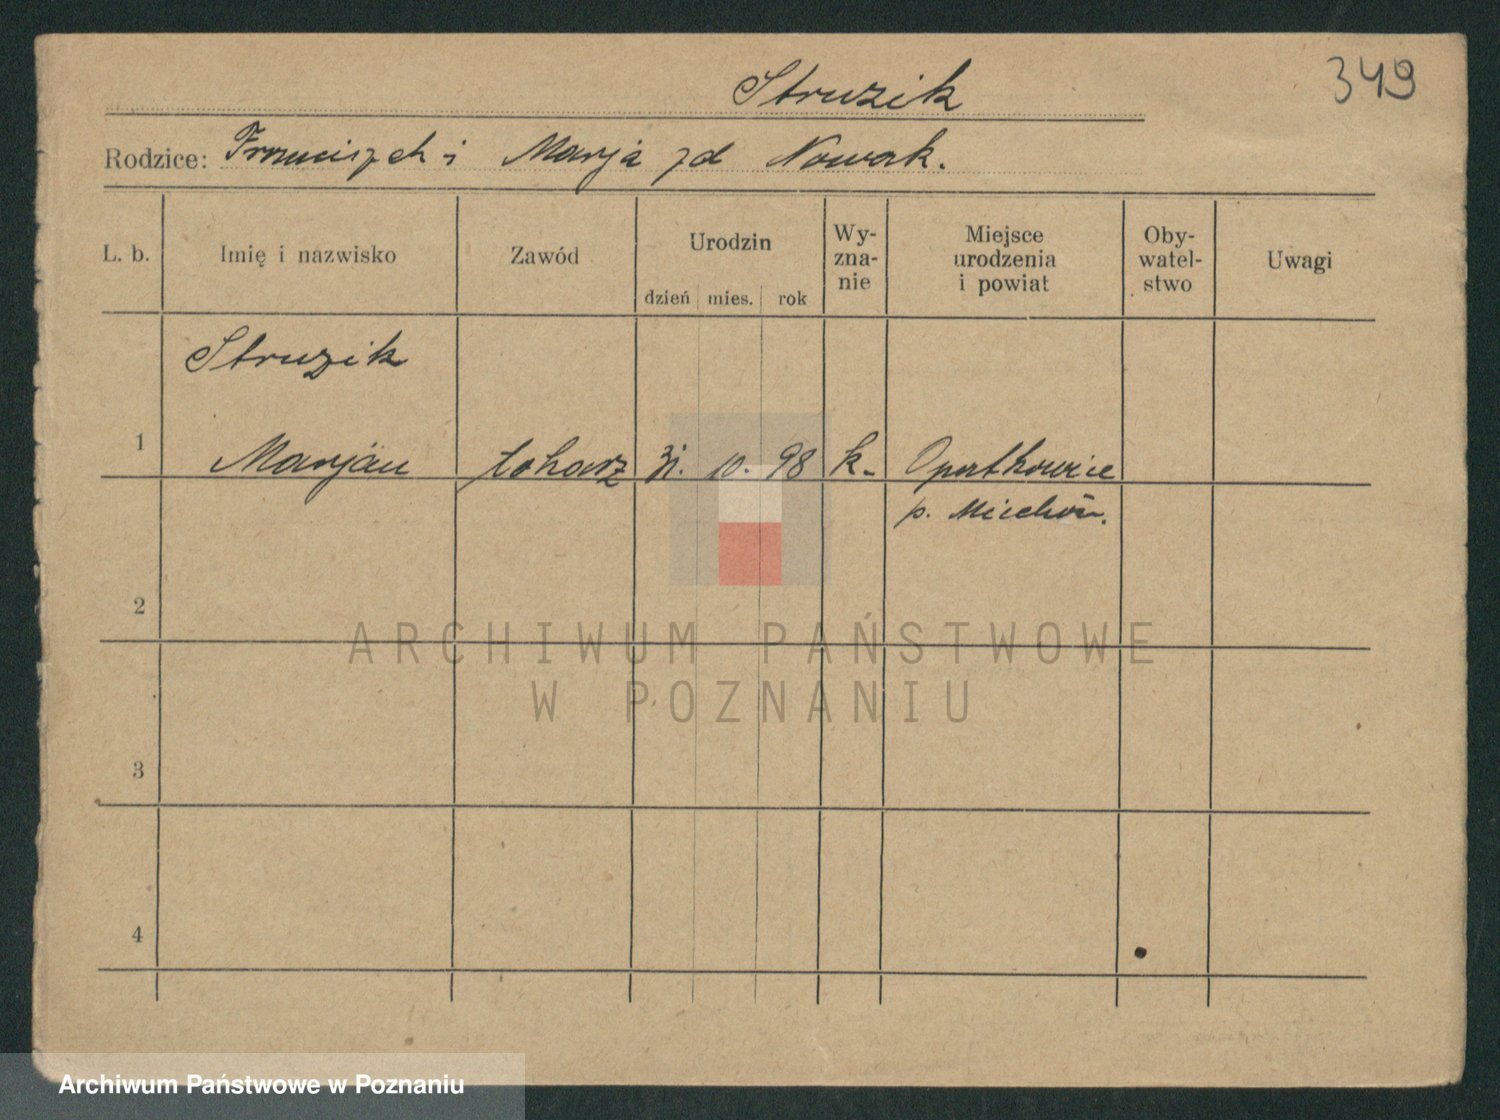 349
Struzik
Rodzice: Franciszek i Marja zd Nowak.
L. b. Imię i nazwisko Zawód Urodzin dzień mies. rok Wyznanie Miejsce urodzenia i powiat Obywatelstwo Uwagi
Struzik
1 Marjan tokarz 31. 10. 98 k. Opatkowice
p. Miechów.
2
3
4
ARCHIWUM PAŃSTWOWE
W POZNANIU
Archiwum Państwowe w Poznaniu